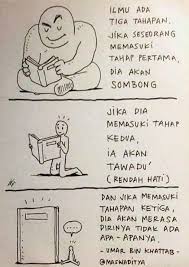 ILMU ADA
TIGA TAHAPAN.
JIKA SESEORANG
MEMASUKI
TAHAP PERTAMA,
DIA AKAN
SOMBONG
JIKA DIA
MEMASUKI TAHAP
KEDUA,
IA AKAN
TAWADU'
(RENDAH HATI)
DAN JIKA MEMASUKI
TAHAPAN KETIGA,
DIA AKAN MERASA
DIRINYA TIDAK ADA
APA-APANYA.
-UMAR BIN KHATTAB-
@MASWADITYA